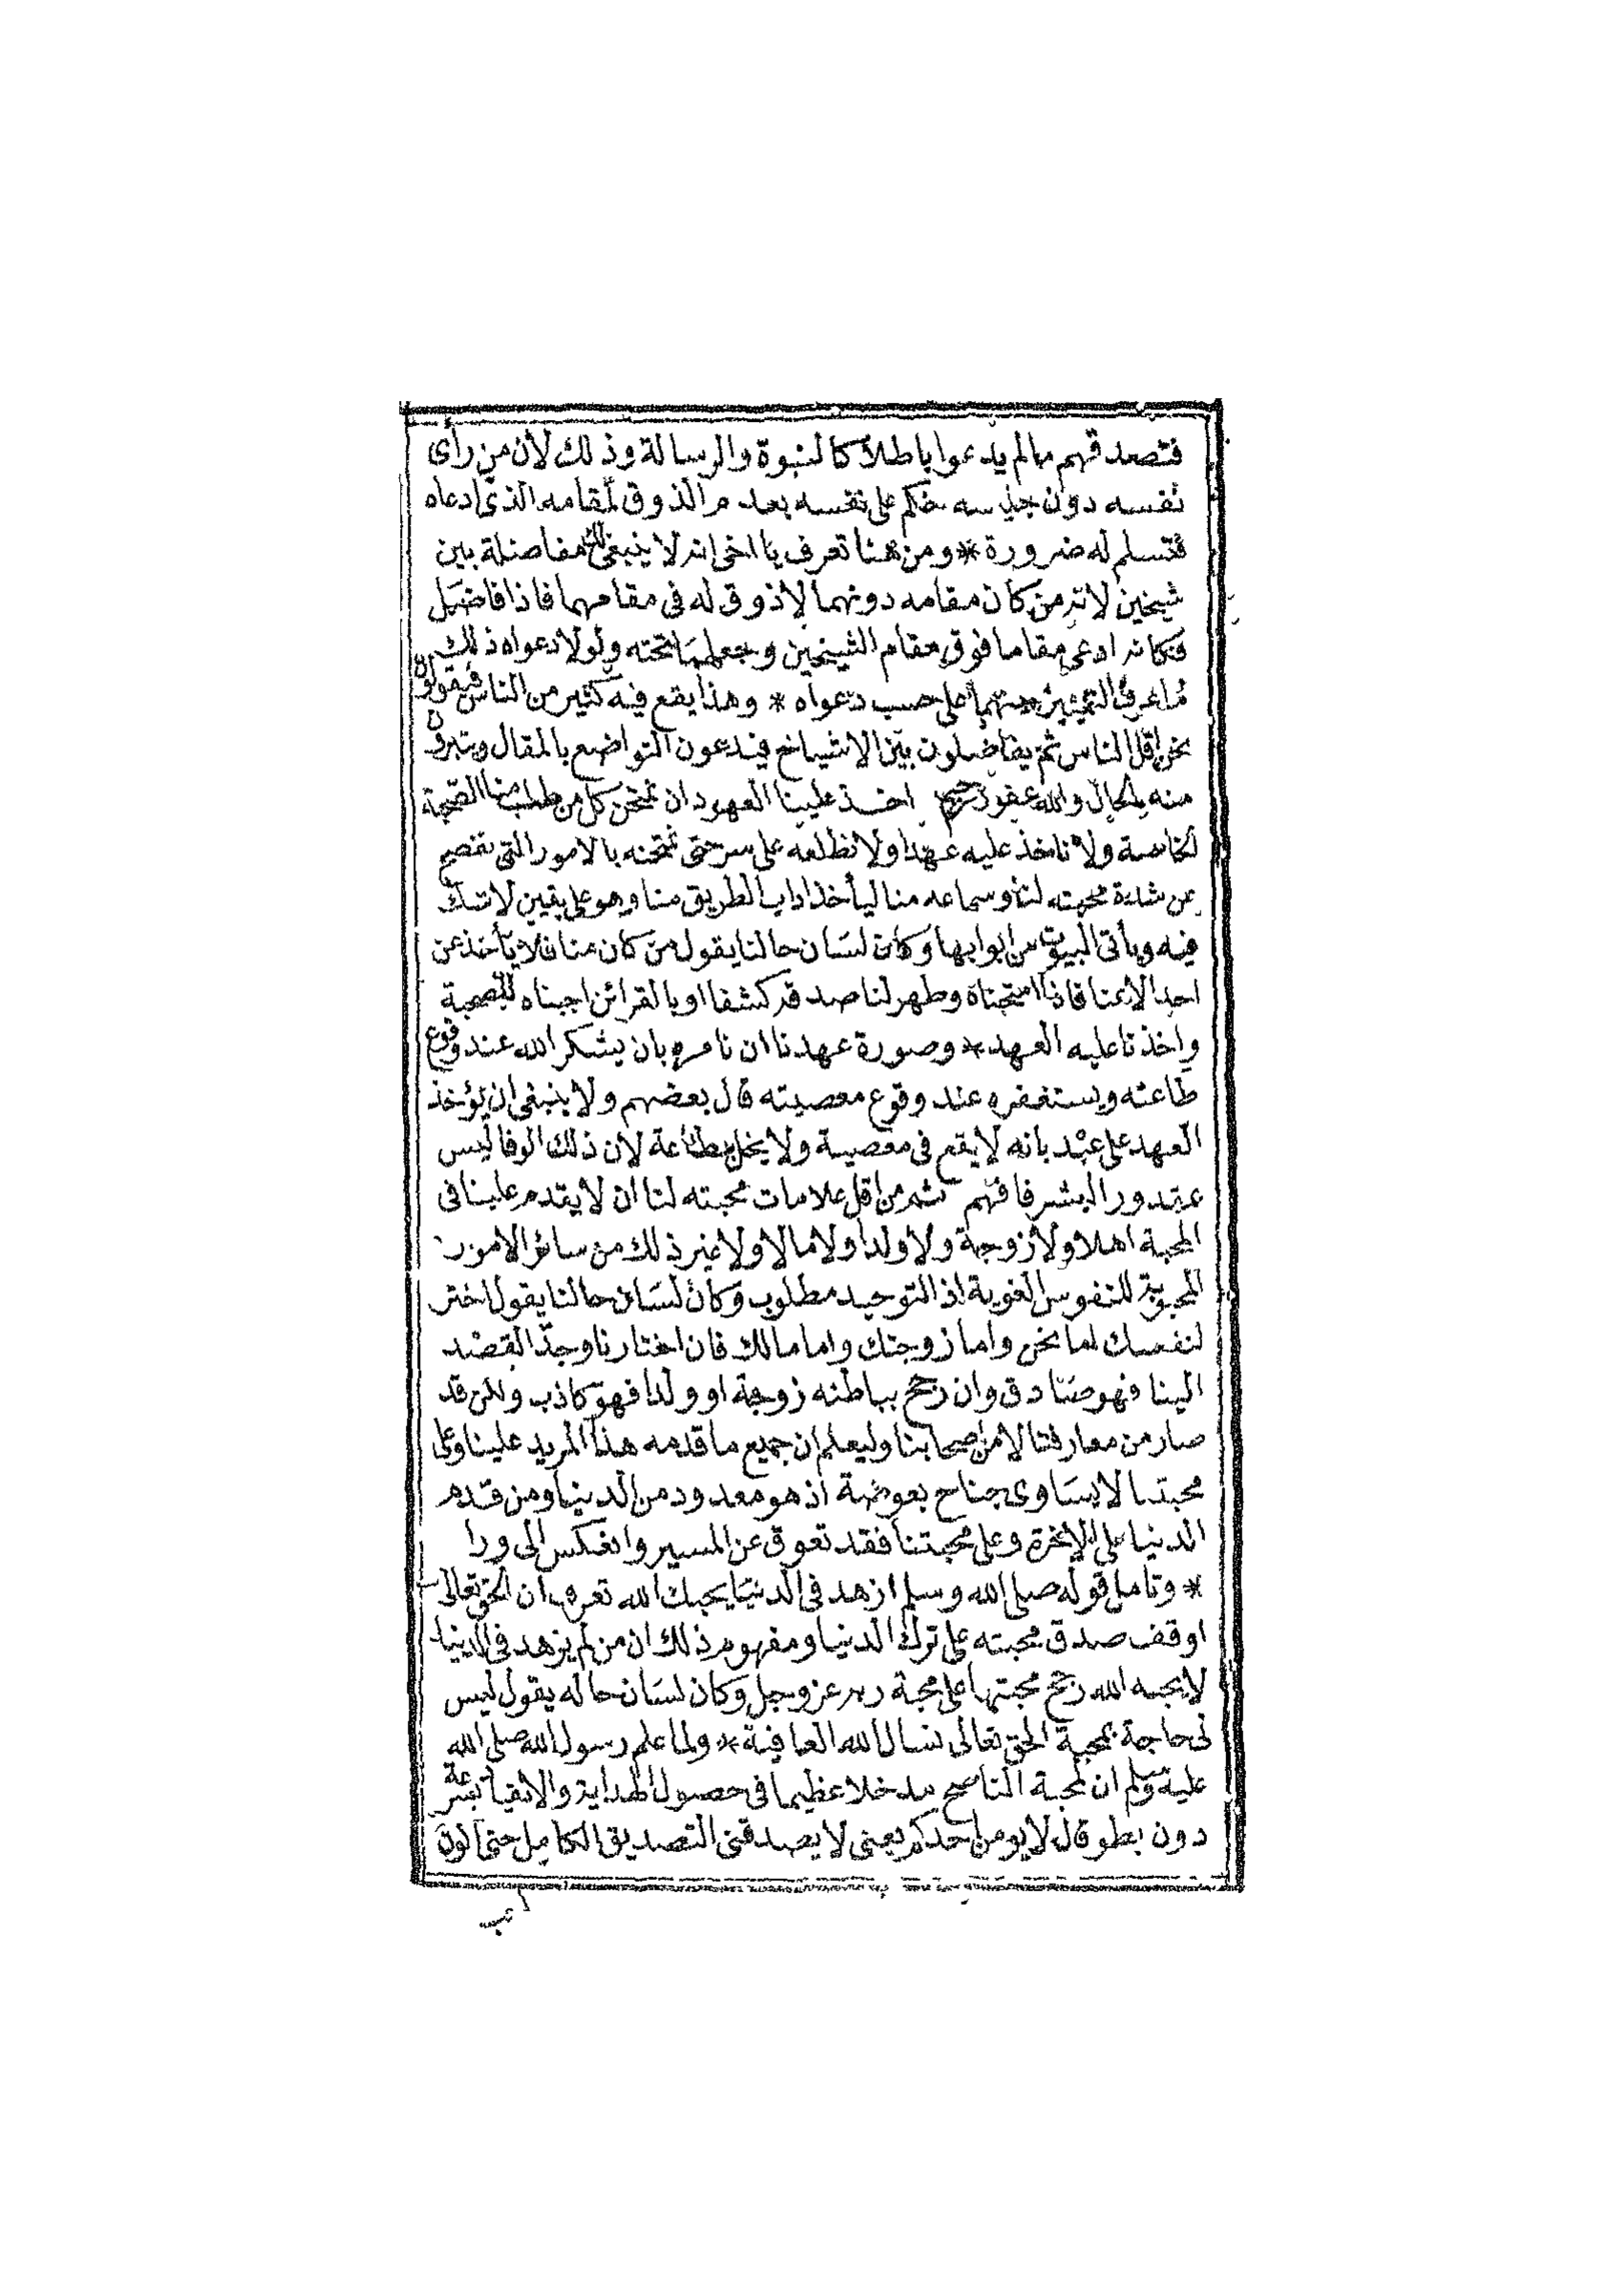 فتصدقهم مالم يدعوا باطلا كالنبوة والرسالة وذلك لأن من رأى
نفسه دون جليسه حكم على نفسه بعدم الذوق لمقامه الذى ادعاه
فتسلم له ضرورة * ومن هنا تعرف يا اخى انه لا ينبغى لك مفاضلة بين
شيخين لانه من كان مقامه دونهما لا ذوق له فى مقامهما فاذا فاضل
فكانه ادعى مقاما فوق مقام الشيخين وجعلهما تحته ولولا دعواه ذلك
ما عرف التمييز بينهما على حسب دعواه * وهذا يقع فيه كثير من الناس فيقولون
نحن اقل الناس ثم يفاضلون بين الاشياخ فيدعون التواضع بالمقال ويتبرون
منه بالحال والله غفور رحيم اخذ علينا العهود ان نمتحن كل من طلب منا الصحبة
الخاصة ولا ناخذ عليه عهدا ولا نطلعه على سر حتى نمتحنه بالامور التى تفصح
عن شدة محبته لنا وسماعه منا ليأخذ اداب الطريق منا وهو على يقين لا شك
فيه وياتى البيوت من ابوابها وكان لسان حالنا يقول من كان منا فلا يأخذ عن
احد الا عنا فاذا امتحناه وظهر لنا صدقه كشفا او بالقرائن اجبناه للصحبة
واخذنا عليه العهد * وصورة عهدنا ان نامره بان يشكر الله عند وقوع
طاعته ويستغفره عند وقوع معصيته قال بعضهم ولا ينبغى ان يؤخذ
العهد على عبد بانه لا يقع فى معصية ولا يخل بطاعة لان ذلك الوفا ليس
بمقدور البشر فافهم ثم من اقل علامات محبته لنا ان لا يقدم علينا فى
المحبة اهلا ولا زوجة ولا ولدا ولا مالا ولا غير ذلك من سائر الامور
المحبوبة للنفوس الغوية اذ التوحيد مطلوب وكان لسان حالنا يقول اختر
لنفسك اما نحن واما زوجتك واما مالك فان اختارنا وجد القصد
الينا فهو صادق وان رجح بباطنه زوجة او ولدا فهو كاذب ولكن قد
صار من معارفنا لا من اصحابنا وليعلم ان جميع ما قدمه هذا المريد علينا وعلى
محبتنا لا يساوى جناح بعوضة اذ هو معدود من الدنيا ومن قدم
الدنيا على الاخرة وعلى محبتنا فقد تعوق عن المسير وانعكس الى ورا
* وتامل قوله صلى الله وسلم ازهد فى الدنيا يحبك الله تعرف ان الحق تعالى
اوقف صدق محبته على ترك الدنيا ومفهوم ذلك ان من لم يزهد فى الدنيا
لا يحبه الله رجح محبتها على محبة ربه عز وجل وكان لسان حاله يقول ليس
لى حاجة بمحبة الحق تعالى نسال الله العافية * ولما علم رسول الله صلى الله
عليه وسلم ان لمحبة الناصح مدخلا عظيما فى حصول الهداية والانقياد بسرعة
دون بطو قال لا يومن احدكم يعنى لا يصدقنى التصديق الكامل حتى اكون
احب